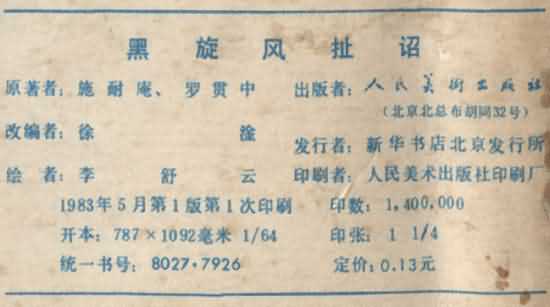 黑旋风扯诏
原著者：施耐庵、罗贯中
改编者：徐淦
绘者：李舒云
1983年5月第1版第1次印刷
开本：787×1092毫米 1/64
统一书号：8027·7926
出版者：人民美术出版社
（北京北总布胡同32号）
发行者：新华书店北京发行所
印刷者：人民美术出版社印刷厂
印数：1,400,000
印张：1 1/4
定价：0.13元